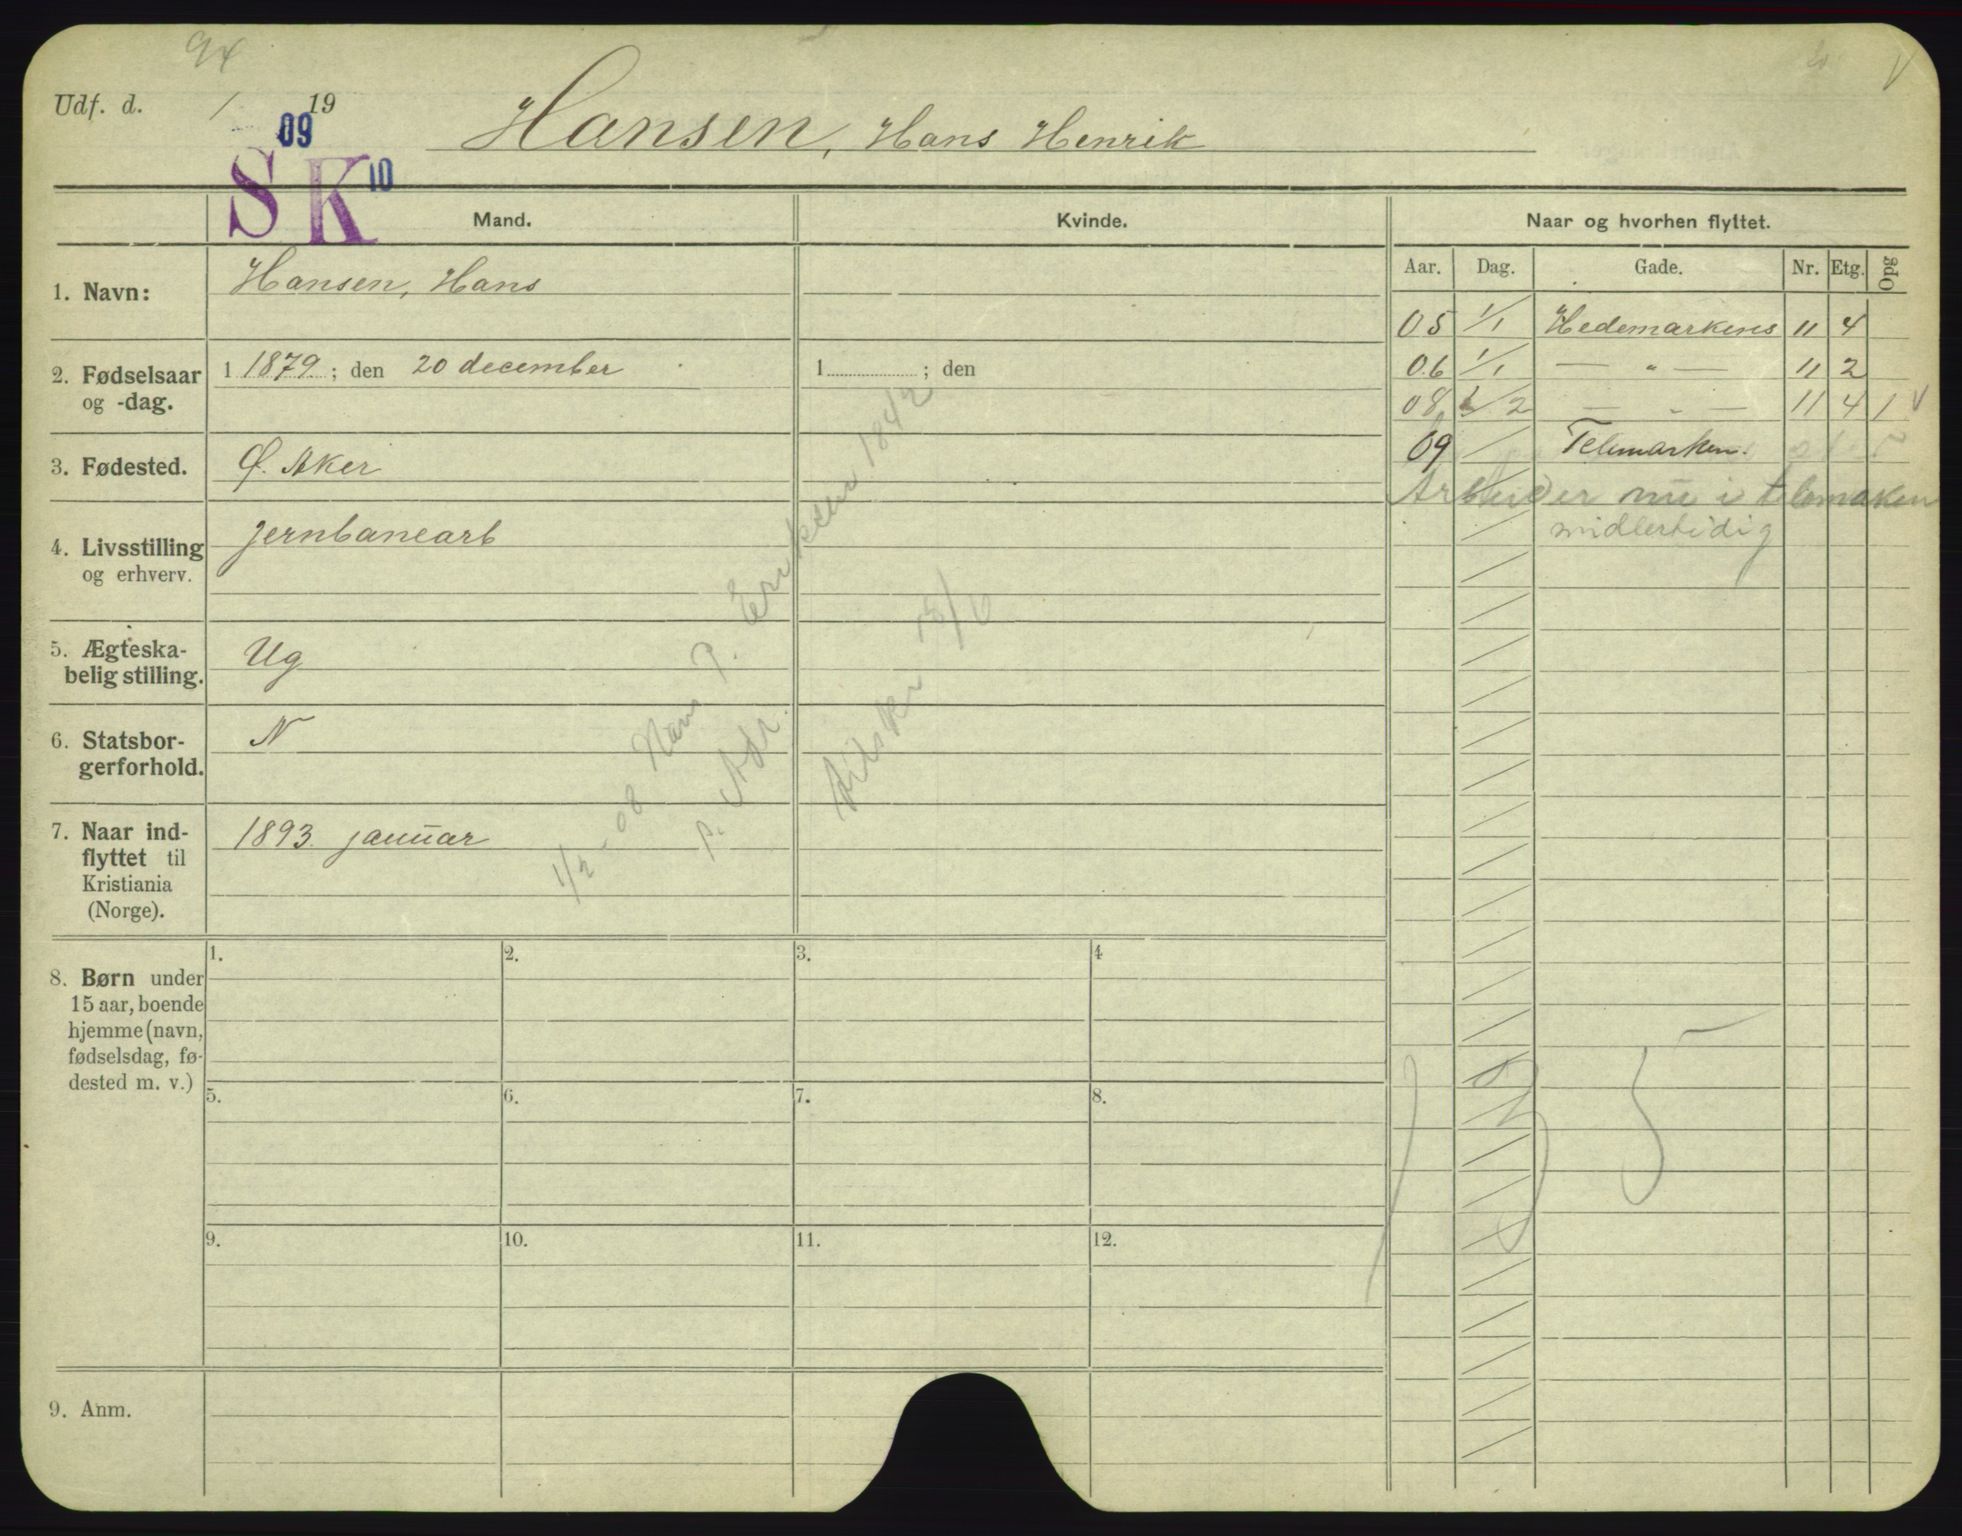 94
Udf. d. / 19
09
S K 10
Hansen, Hans Henrik
Mand. Kvinde. Naar og hvorhen flyttet.
Aar. Dag. Gade. Nr. Etg. Opg
1. Navn: Hansen, Hans
05 1/1 Hedemarkens 11 4
2. Fødselsaar og -dag. 1 1879 ; den 20 december 1 ; den
06 1/1 — „ — 11 2
08 1/2 — „ — 11 4 1 V
3. Fødested. Ø. Aker
09 / Telemarken.
Arbeider nu i telemaken
midlertidig
4. Livsstilling og erhverv. jernbanearb
5. Ægteska-
belig stilling. Ug
6. Statsbor-
gerforhold. N
7. Naar ind-
flyttet til
Kristiania
(Norge).
1893 januar
1/2 - 08 Hans P. Eriksen 1842
p. Adr.
8. Børn under
15 aar, boende
hjemme (navn,
fødselsdag, fø-
dested m. v.)
1. 2. 3. 4
5. 6. 7. 8.
9. 10. 11. 12.
135
9. Anm.